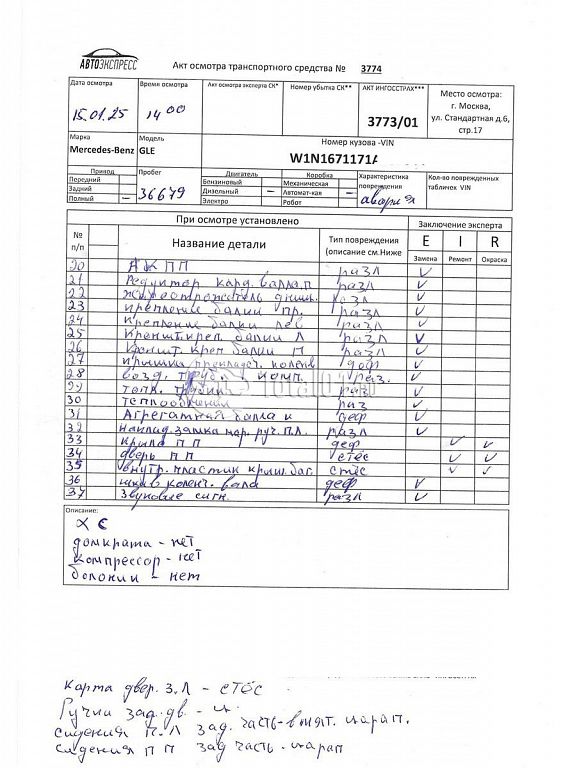 АВТОЭКСПРЕСС
Акт осмотра транспортного средства № 3774
Дата осмотра Время осмотра Акт осмотра эксперта СК* Номер убытка СК** АКТ ИНГОССТРАХ*** Место осмотра:
15.01.25 14 00 3773/01 г. Москва,
ул. Стандартная д.6,
стр.17
Марка Модель Номер кузова -VIN
Mercedes-Benz GLE W1N1671171A
Привод Пробег Двигатель Коробка Характеристика повреждения Кол-во поврежденных табличек VIN
Передний Бензиновый Механическая
Задний 36679 Дизельный – Автомат-кая – авария
Полный – Электро Робот
При осмотре установлено Заключение эксперта
№ п/п Название детали Тип повреждения (описание см.Ниже E I R
Замена Ремонт Окраска
20 АКПП разл ✓
21 Редуктор кард. вала п разл ✓
22 разл ✓
23 крепление балки пр. разл ✓
24 Крепление балки лев разл ✓
25 Кроншт. креп. балки Л разл ✓
26 Кроншт креп балки П разл ✓
27 крышка коленв деф ✓
28 возд. труб. комп. раз. ✓
29 топл. трубки раз ✓
30 теплообменн раз ✓
31 Агрегатная балка деф ✓
32 наклад. замка нар. руч. П.Л. разл ✓
33 крыло П П деф ✓ ✓
34 дверь П П стёс ✓ ✓
35 внутр. пластик крыш. баг. стёс ✓ ✓
36 шкив колен. вала деф ✓
37 Звуковые сигн. разл ✓
Описание:
Х С
домкрата - нет
компрессор - нет
балонки - нет
Карта двер. З.Л - стёс
Ручки зад. дв. - ц.
сидения П.Л зад. часть - вмят. царап.
сидения П П зад часть - царап